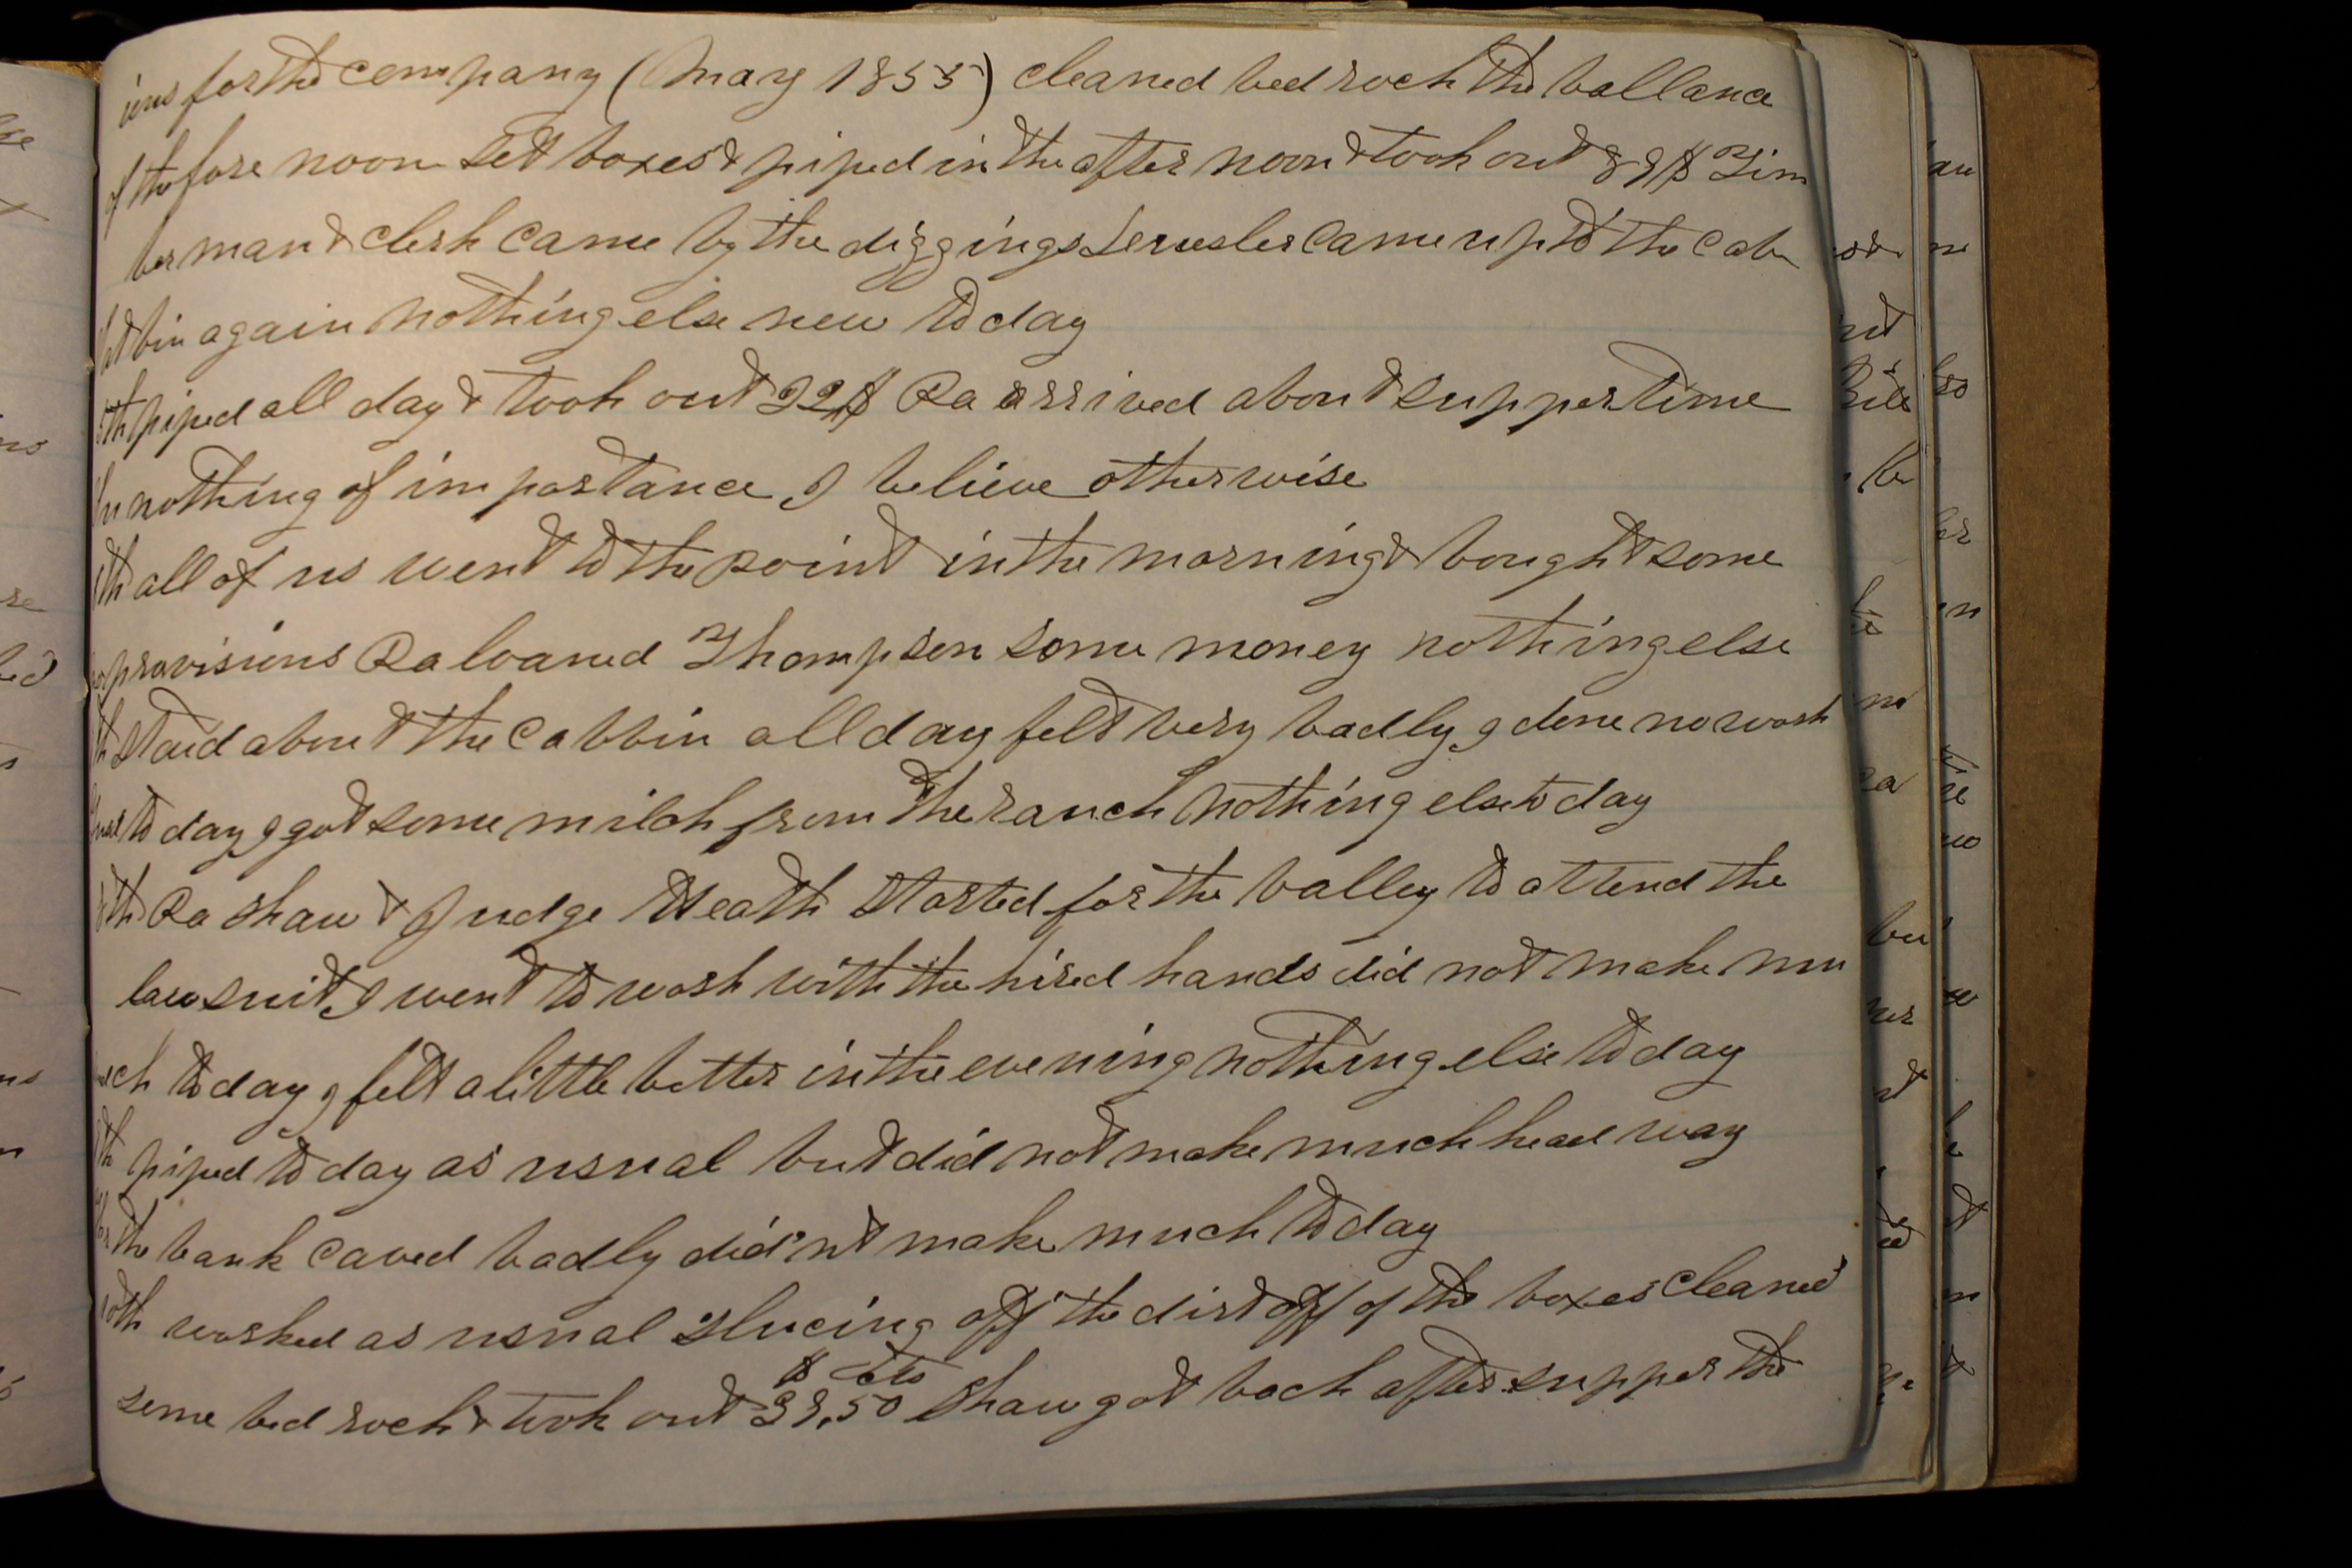 ions for the company (May 1855) cleaned bed rock the ballance
of the fore noon set boxes & piped in the after noon & took out 39$ Tim
berman & clerk came by the diggings came up to the cab
bin again nothing else new to day
piped all day & took out 22$ Ra arrived about supper time
nothing of importance I believe otherwise
all of us went to the point in the morning & bought some
provisions Ra loaned Thompson some money nothing else
staid about the cabbin all day felt very badly I done no work
to day I got some milck from the ranch nothing else to day
Ra Shaw & Judge Heath started for the valley to attend the
law suit I went to work with the hired hands did not make mu
uch to day I felt a little better in the evening nothing else to day
piped to day as usual but did not make much head way
the bank caved badly did'nt make much to day
worked as usual slucing off the dirt off of the boxes cleaned
$ cts
some bed rock & took out 39,50 Shaw got back after supper the